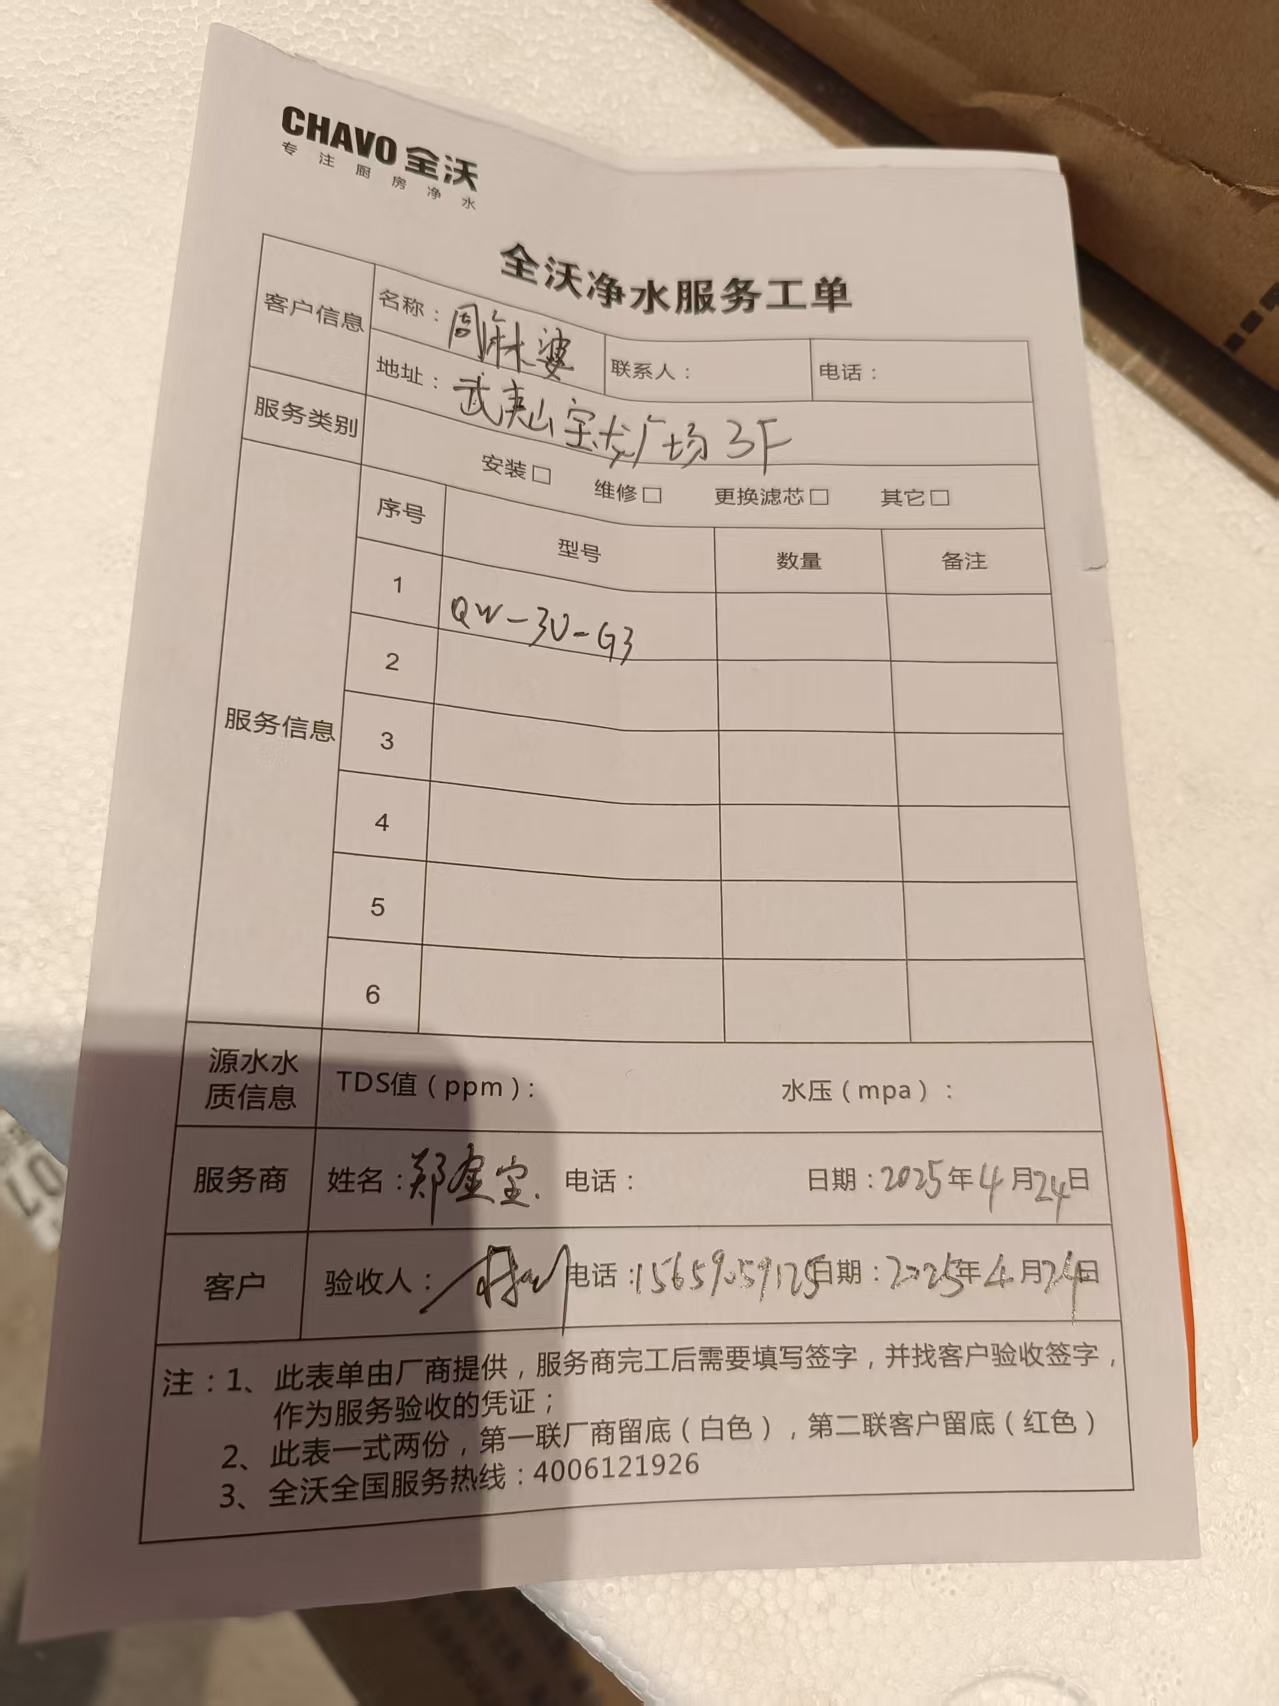 CHAVO 全沃
专注厨房净水
全沃净水服务工单
客户信息
名称：周麻婆
联系人：
电话：
地址：武夷山宝龙广场3F
服务类别
安装□ 维修□ 更换滤芯□ 其它□
服务信息
序号 型号 数量 备注
1 QW-3U-G3
2
3
4
5
6
源水水质信息
TDS值（ppm）： 水压（mpa）：
服务商 姓名：郑金宝 电话： 日期：2025年4月24日
客户 验收人： 电话：15659059125 日期：2025年4月24日
注：1、此表单由厂商提供，服务商完工后需要填写签字，并找客户验收签字，
作为服务验收的凭证；
2、此表一式两份，第一联厂商留底（白色），第二联客户留底（红色）
3、全沃全国服务热线：4006121926
07